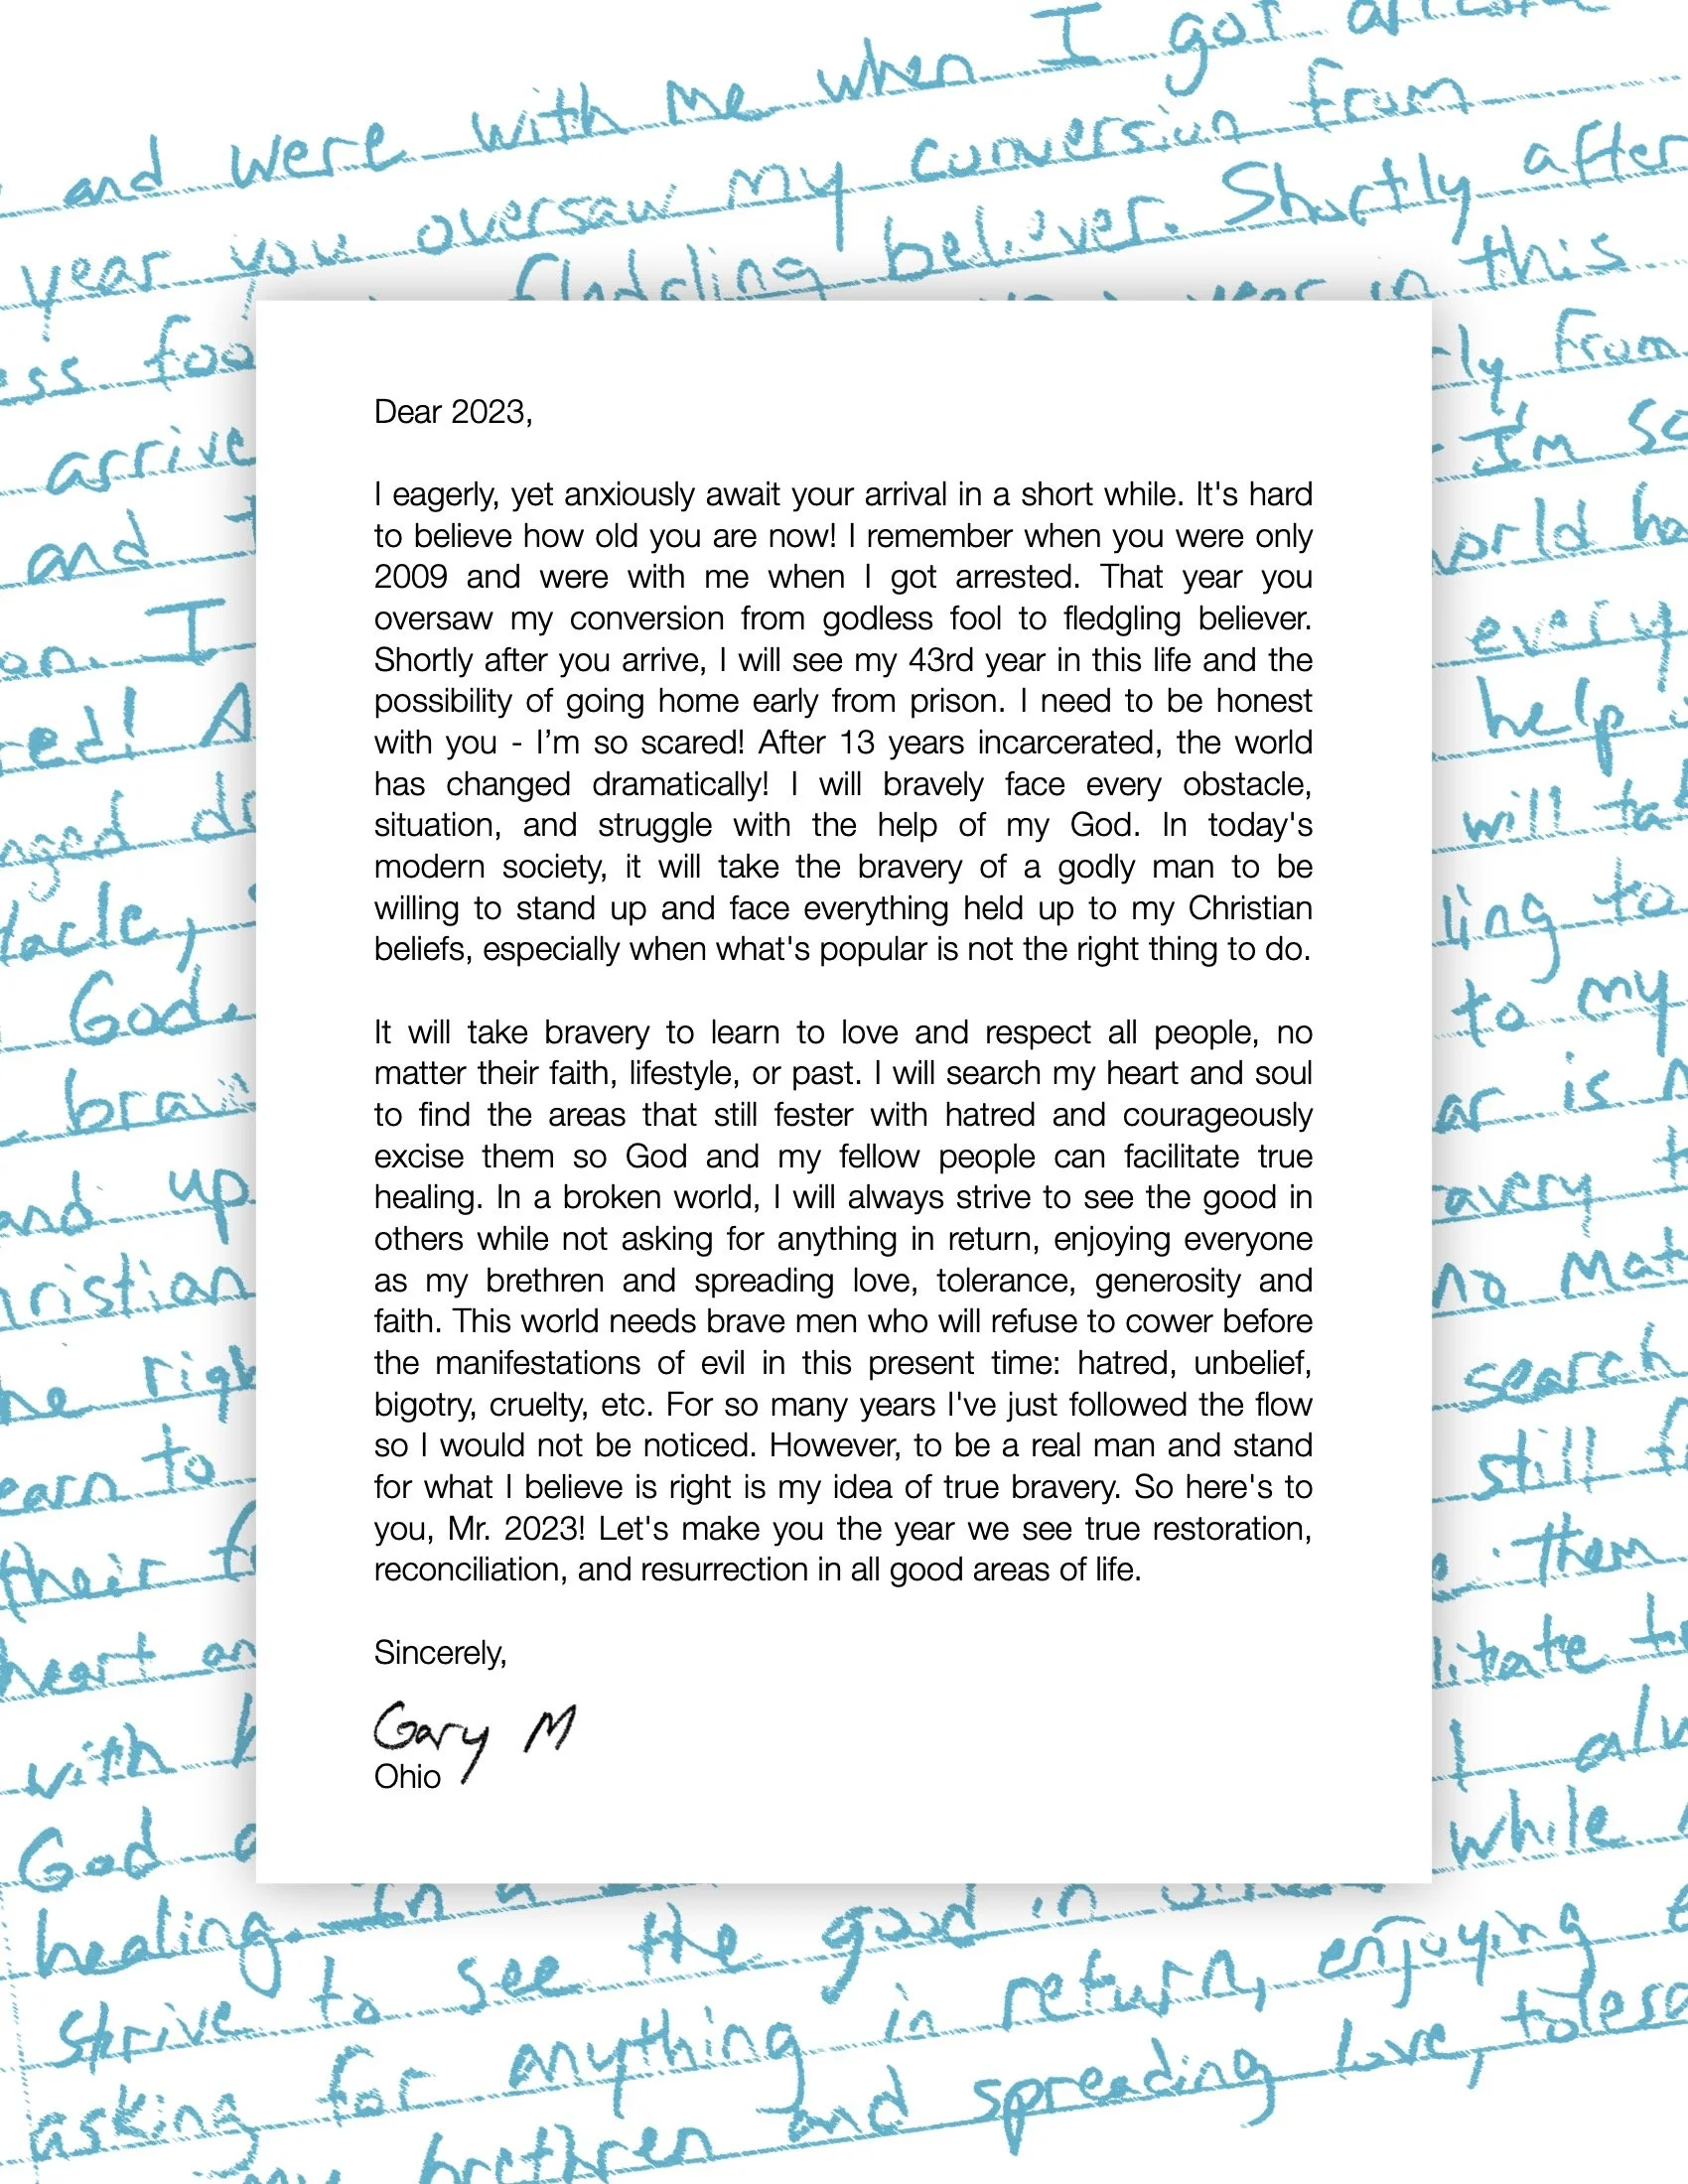 and were with me when I got
year you oversaw my conversion from
fledgling believer. Shortly after
year in this
ess foo
ly from
arrive
I'm so
and t
world ha
on. I
every
red! A
help
nged dr
will tak
tacle,
ling to
God.
to my
brav
ar is
and up
avery t
hristian
no mat
he righ
search
earn to
still f
their f
them
heart an
litate tr
with h
I alw
God a
while
healing. In a
good in
strive to see the
in return, enjoying
asking for anything
spreading love, tolera
my brethren and
Dear 2023,
I eagerly, yet anxiously await your arrival in a short while. It's hard
to believe how old you are now! I remember when you were only
2009 and were with me when I got arrested. That year you
oversaw my conversion from godless fool to fledgling believer.
Shortly after you arrive, I will see my 43rd year in this life and the
possibility of going home early from prison. I need to be honest
with you - I’m so scared! After 13 years incarcerated, the world
has changed dramatically! I will bravely face every obstacle,
situation, and struggle with the help of my God. In today's
modern society, it will take the bravery of a godly man to be
willing to stand up and face everything held up to my Christian
beliefs, especially when what's popular is not the right thing to do.
It will take bravery to learn to love and respect all people, no
matter their faith, lifestyle, or past. I will search my heart and soul
to find the areas that still fester with hatred and courageously
excise them so God and my fellow people can facilitate true
healing. In a broken world, I will always strive to see the good in
others while not asking for anything in return, enjoying everyone
as my brethren and spreading love, tolerance, generosity and
faith. This world needs brave men who will refuse to cower before
the manifestations of evil in this present time: hatred, unbelief,
bigotry, cruelty, etc. For so many years I've just followed the flow
so I would not be noticed. However, to be a real man and stand
for what I believe is right is my idea of true bravery. So here's to
you, Mr. 2023! Let's make you the year we see true restoration,
reconciliation, and resurrection in all good areas of life.
Sincerely,
Gary M
Ohio